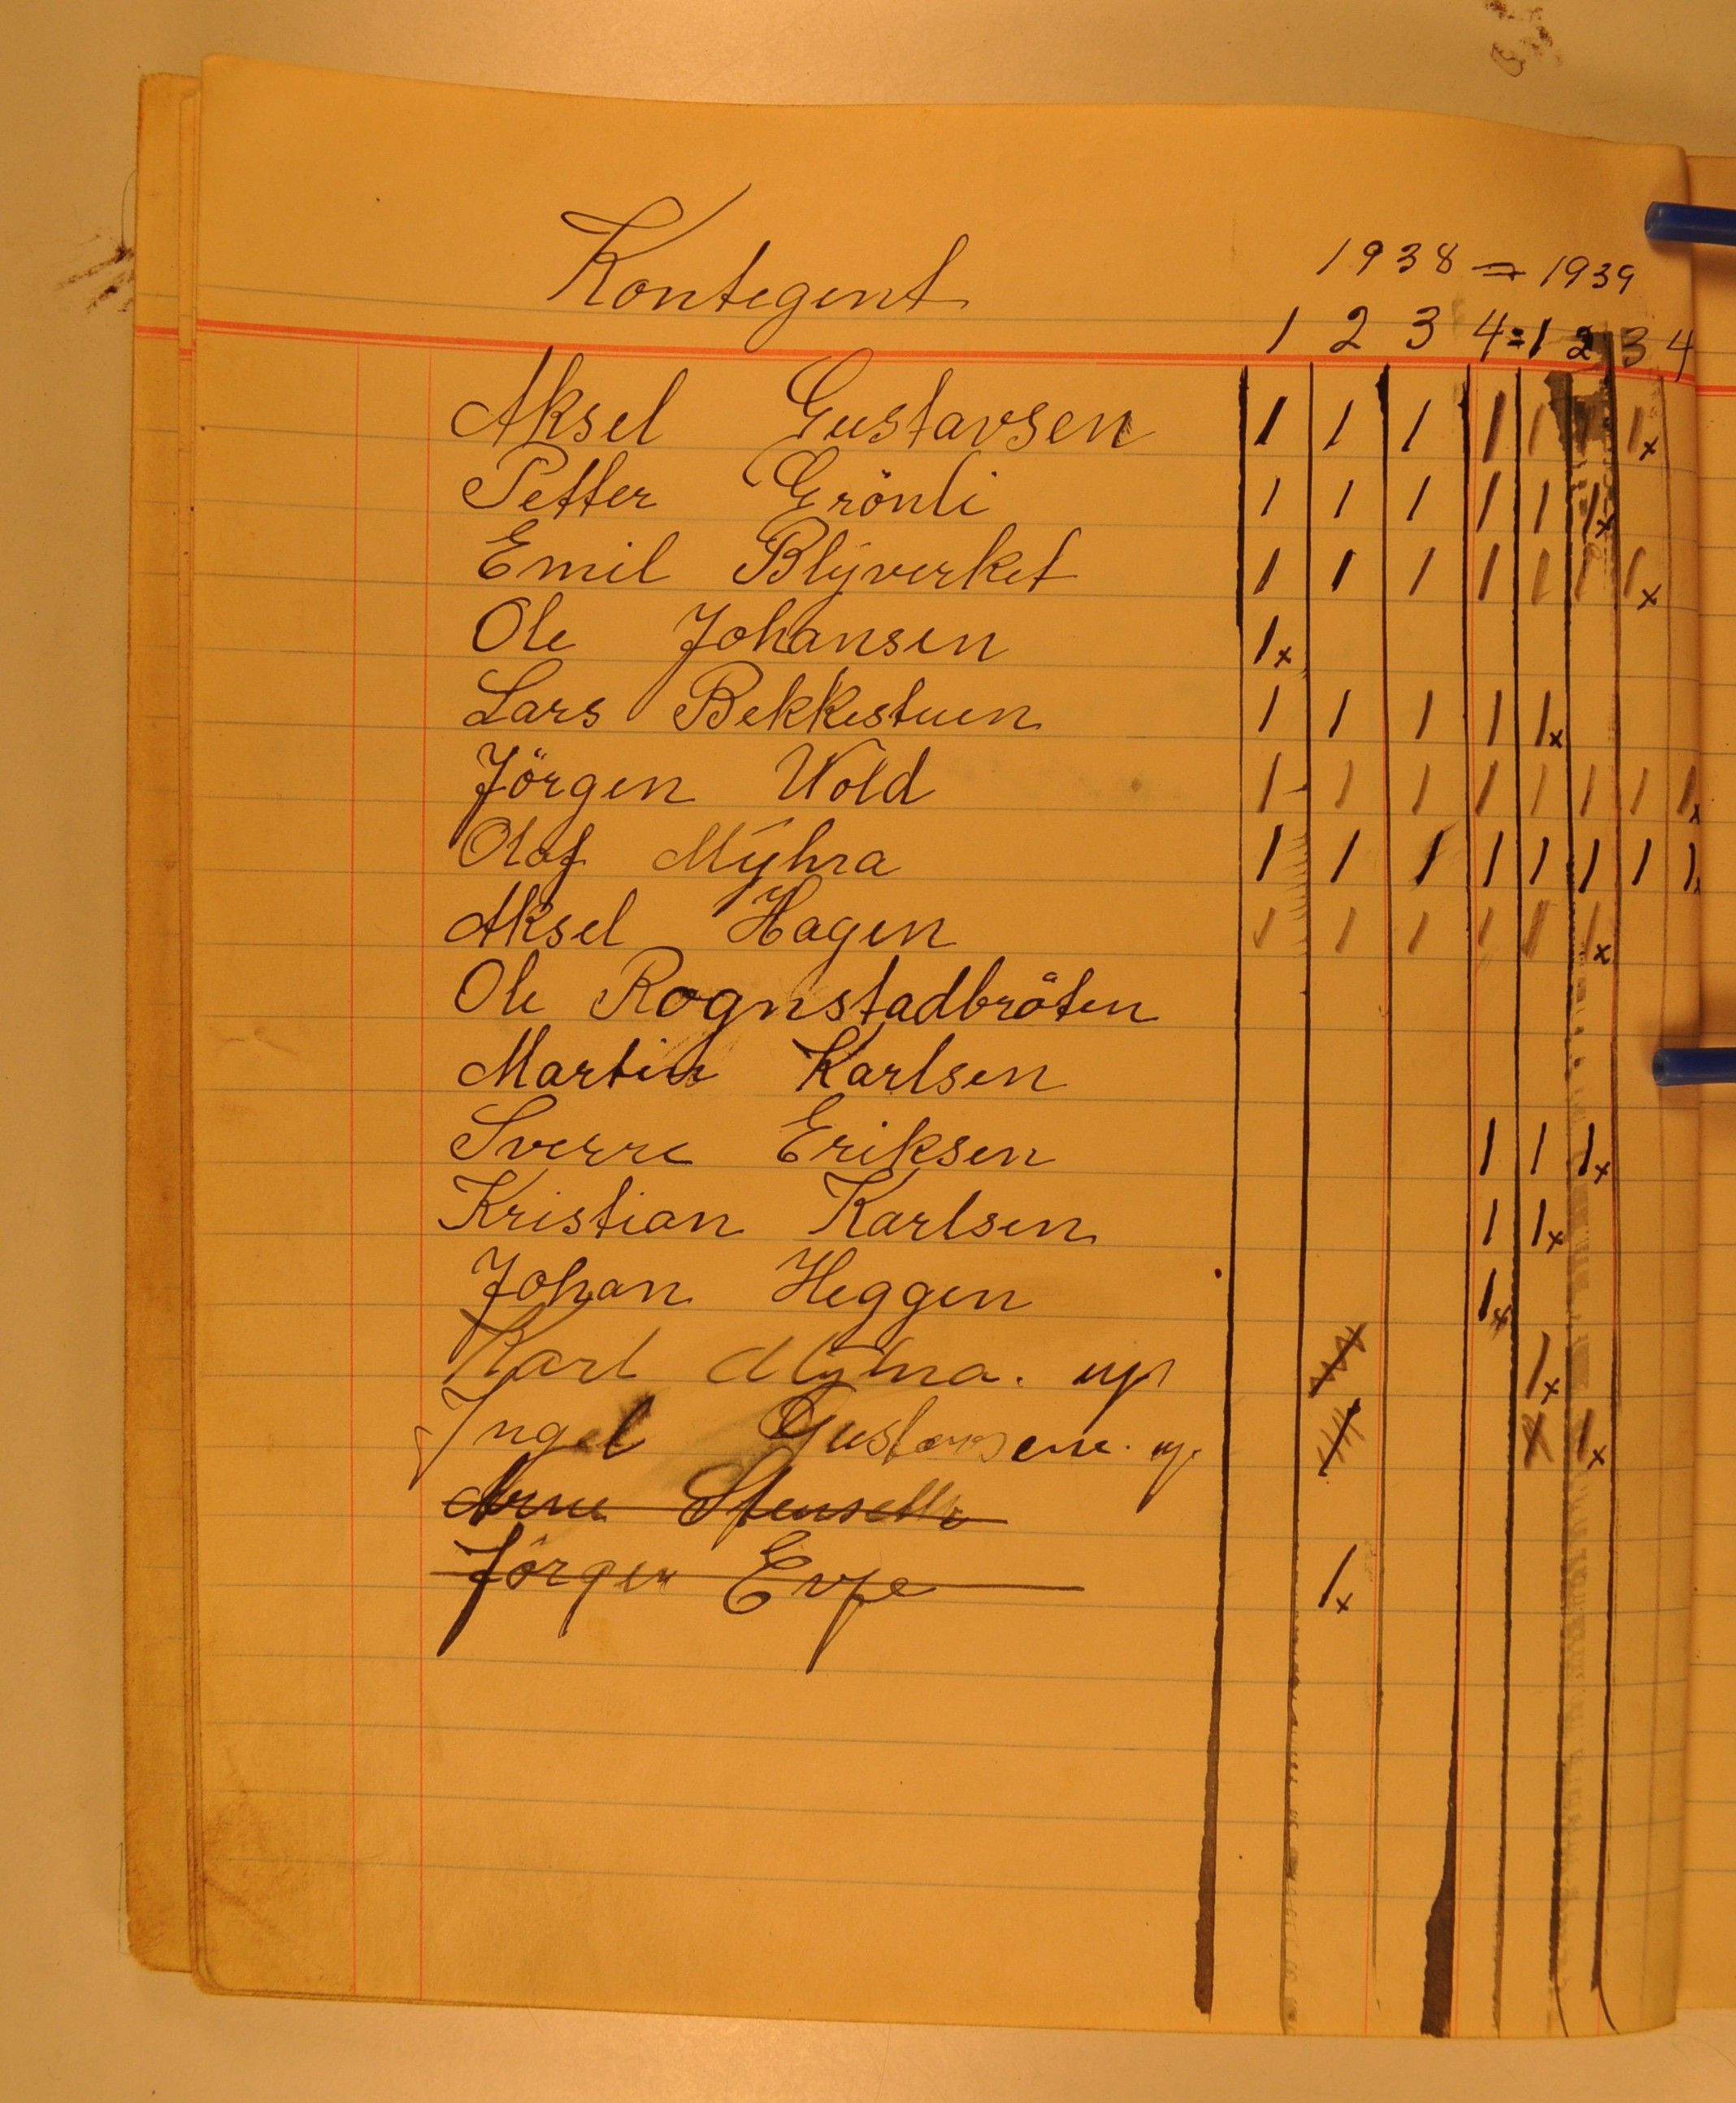 Kontegent 1938 = 1939
1 2 3 4 = 1 2 3 4
Aksel Gustavsen 1 1 1 1 1 1 1x
Petter Grönli 1 1 1 1 1 1x
Emil Blÿverket 1 1 1 1 1 1 1x
Ole Johansen 1x
Lars Bekkestuen 1 1 1 1 1x
Jörgen Wold 1 1 1 1 1 1 1 1x
Olaf Mÿhra 1 1 1 1 1 1 1 1x
Aksel Hagen 1 1 1 1 1 1x
Ole Rognstadbröten
Martin Karlsen
Sverre Eriksen 1 1 1x
Kristian Karlsen 1 1x
Johan Heggen 1x
Karl Mÿhra. 1x
Gustavsen 1x
Arne
Jörgen Evje 1x